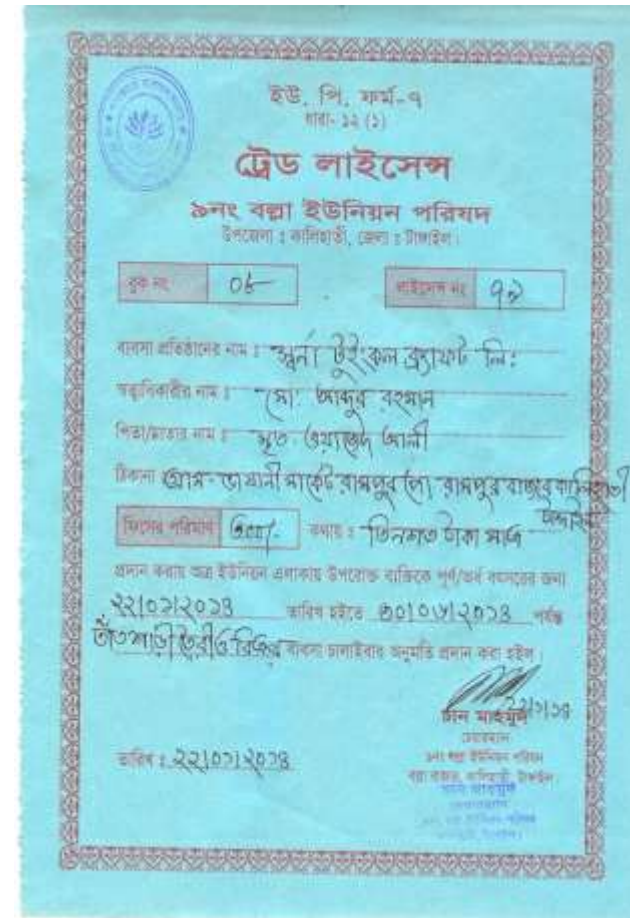 ইউ. পি. ফর্ম-৭
ধারা- ১২ (১)
ট্রেড লাইসেন্স
৯নং বল্লা ইউনিয়ন পরিষদ
উপজেলা : কালিহাতী, জেলা : টাঙ্গাইল।
বুক নং ০৮ লাইসেন্স নং ৭৯
ব্যবসা প্রতিষ্ঠানের নাম : স্বর্না টুইংকল ক্র্যাফট লি:
স্বত্বাধিকারীর নাম : মো: আব্দুর রহমান
পিতা/মাতার নাম : মৃত ওয়াজেদ আলী
ঠিকানা গ্রাম- ভাষানী মার্কেট রামপুর পো: রামপুর বাজার কালিহাতী টাঙ্গাইল
ফিসের পরিমাণ ৩০০/- কথায় : তিনশত টাকা মাত্র
প্রদান করায় অত্র ইউনিয়ন এলাকায় উপরোক্ত ব্যক্তিকে পূর্ণ/অর্ধ বৎসরের জন্য
২২/০১/২০১৪ তারিখ হইতে ৩০/০৬/২০১৪ পর্যন্ত
তাঁতশাড়ী তৈরী ও বিক্রয় ব্যবসা চালাইবার অনুমতি প্রদান করা হইল।
২২/১/১৪
মাহমুদ
চেয়ারম্যান
৯নং বল্লা ইউনিয়ন পরিষদ
বল্লা বাজার, কালিহাতী, টাঙ্গাইল
তারিখ : ২২/০১/২০১৪